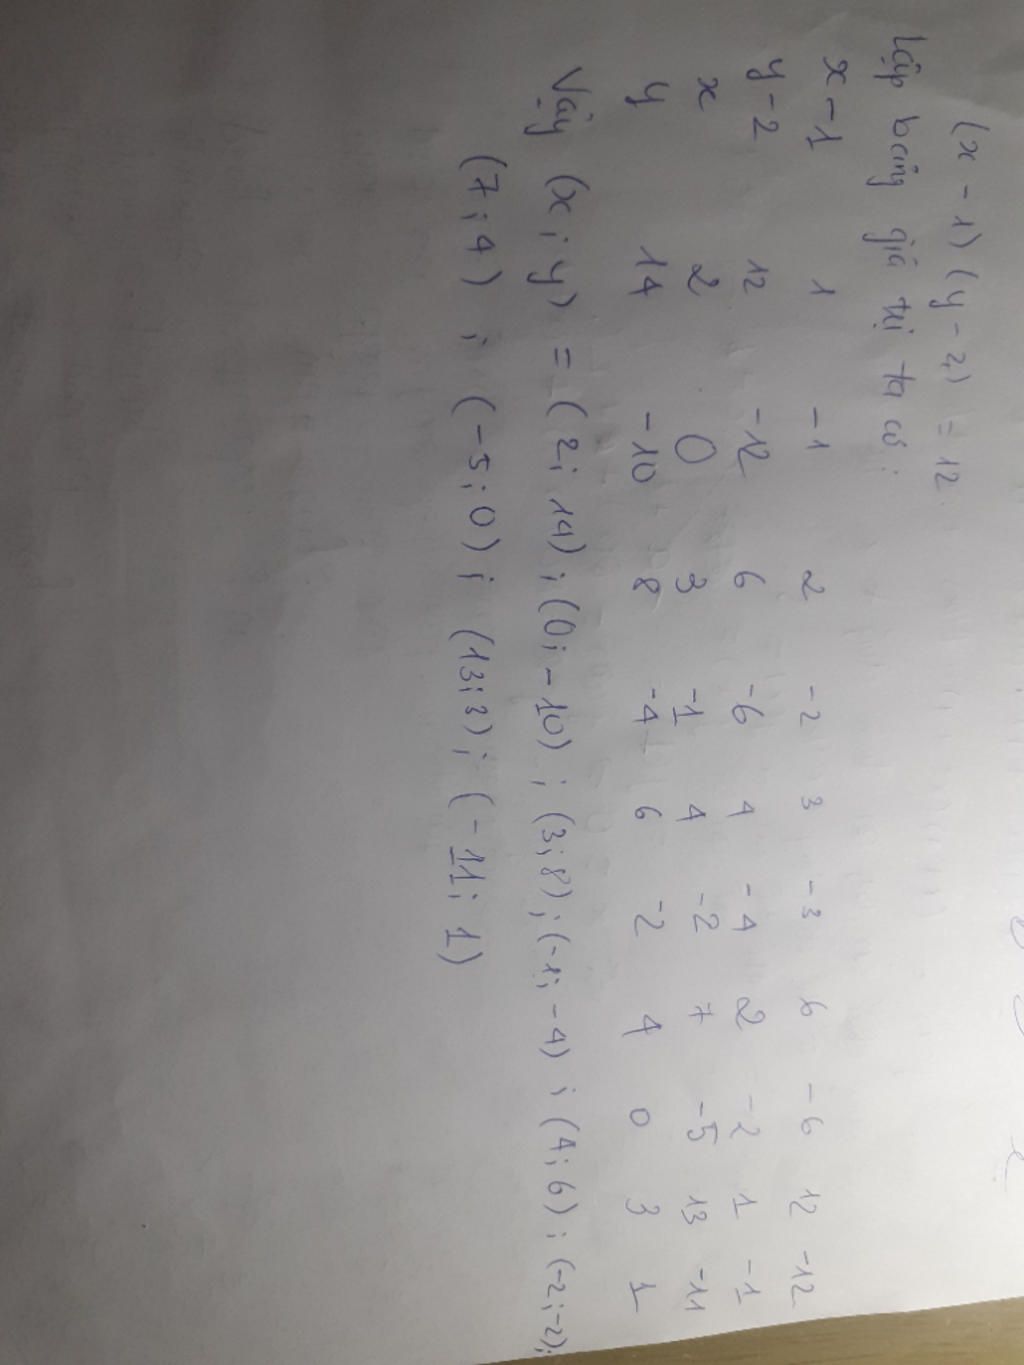 (x - 1) (y - 2) = 12
Lập bảng giá trị ta có :
x - 1 1 -1 2 -2 3 -3 6 -6 12 -12
y - 2 12 -12 6 -6 4 -4 2 -2 1 -1
x 2 0 3 -1 4 -2 7 -5 13 -11
y 14 -10 8 -4 6 -2 4 0 3 1
Vậy (x ; y) = (2; 14) ; (0; -10) ; (3; 8) ; (-1; -4) ; (4; 6) ; (-2; -2);
(7; 4) ; (-5; 0) ; (13; 3) ; (-11; 1)